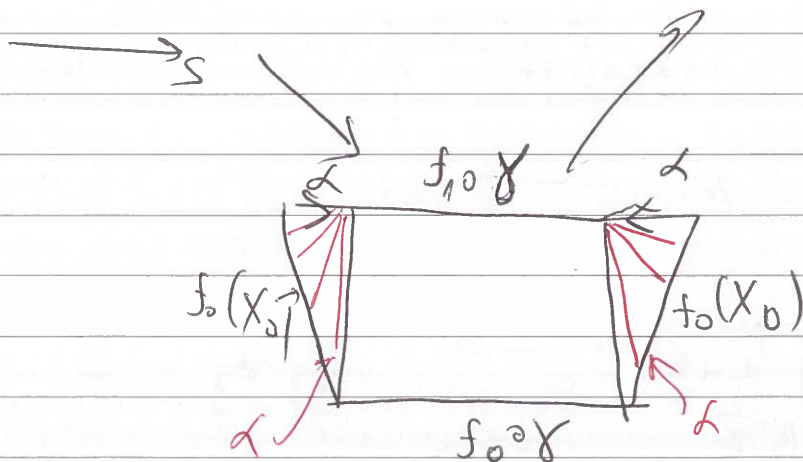 S
α f₁∘γ α
f₀(X₀) f₀(X₀)
α f₀∘γ α